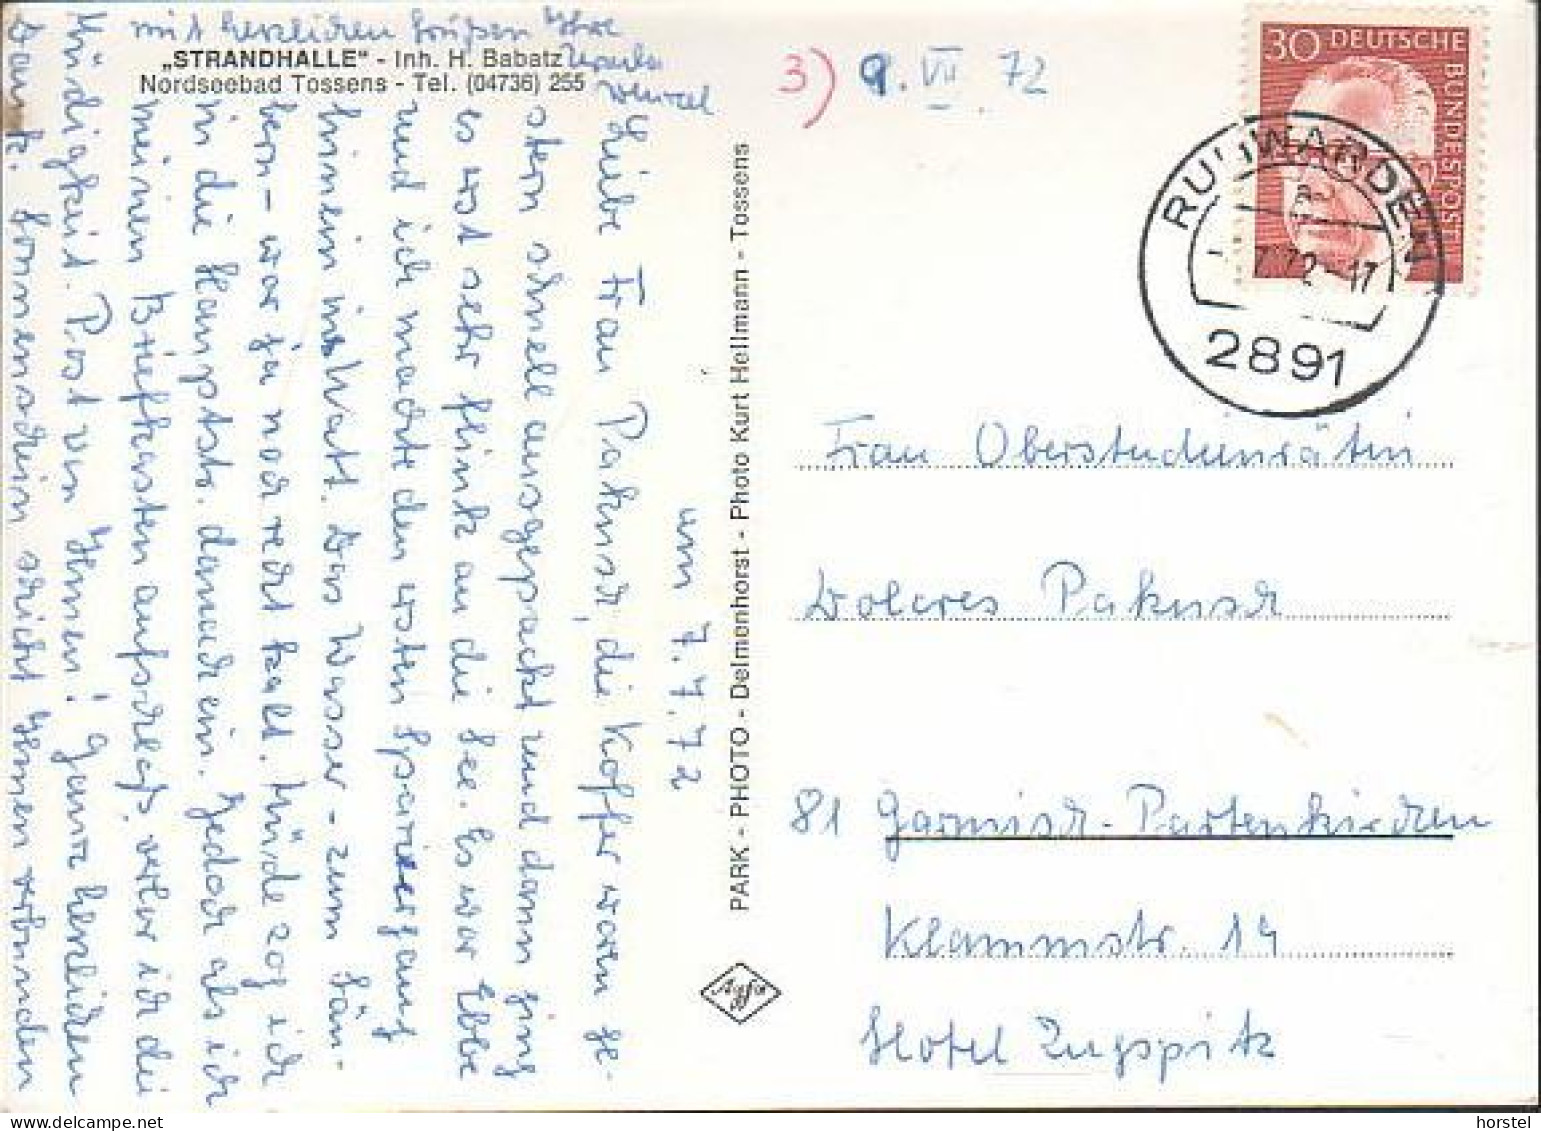 „STRANDHALLE" - Inh. H. Babatz
Nordseebad Tossens - Tel. (04736) 255
am 7.7.72
Liebe Frau Pakusch, die Koffer waren ge-
stern schnell ausgepackt und dann ging
es erst sehr flink an die See. Es war Ebbe
und ich machte den ersten Spaziergang
hinein ins Watt. Das Wasser - zum Säu-
bern - war ja noch recht kalt. Müde zog ich
in die Hauptstr. danach ein. Jedoch als ich
meinen Briefkasten aufschließ, verlor ich die
Müdigkeit. Post von Ihnen! Ganz herzlichen
Dank. Sonnenschein schickt Ihnen verbunden
mit herzlichen Grüßen Ihre
Ursula
Wenzel
PARK - PHOTO - Delmenhorst - Photo Kurt Hellmann - Tossens
Agfa
3) 9. VII. 72
30 DEUTSCHE BUNDESPOST
RUHWARDEN
7.72-17
2891
Frau Oberstudienrätin
Dolores Pakusch
81 Garmisch-Partenkirchen
Klammstr. 14
Hotel Zugspitz
horstel
www.delcampe.net